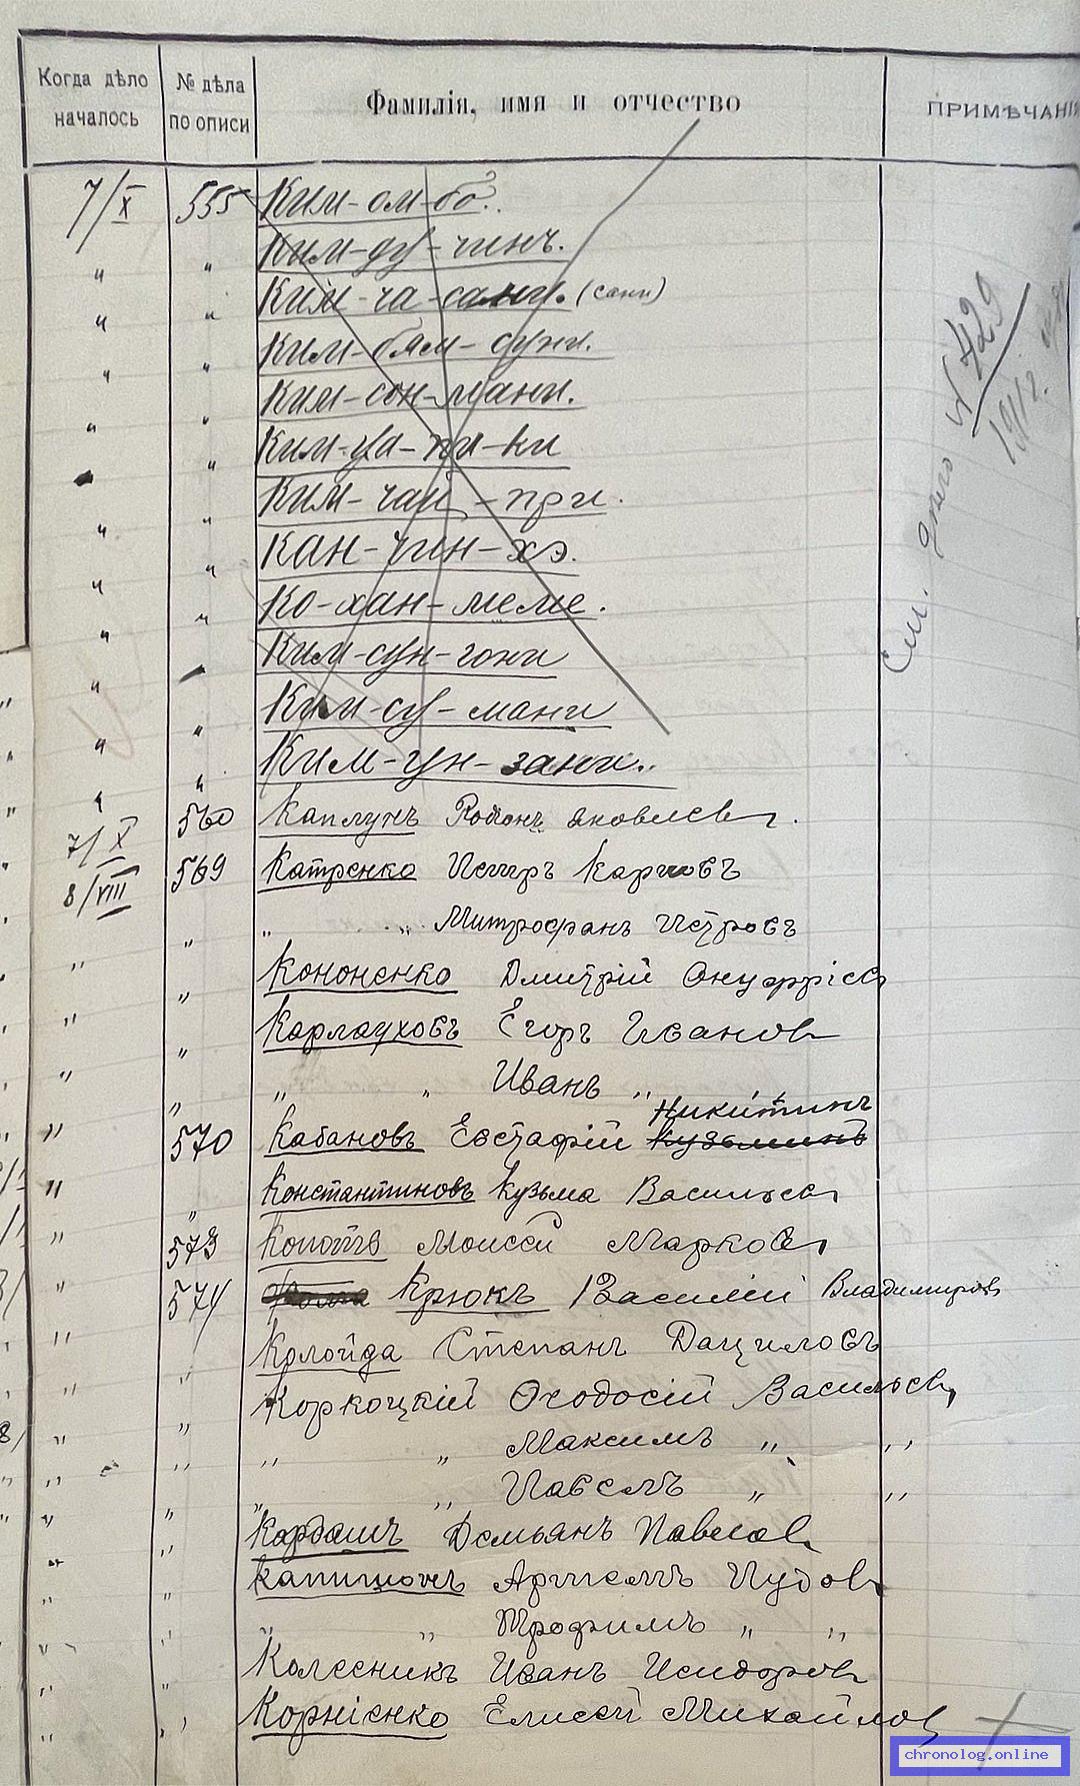 Когда дѣло началось № дѣла по описи Фамилія, имя и отчество ПРИМѢЧАНІЯ
7/X 555 Ким-ом-бо.
" " Ким-ду-чинъ.
" " Ким-ча-сани. (сани)
" " Ким-бям-суни.
" " Ким-сон-мани.
" " Ким-ца-ни-ки
" Ким-чай-при.
" " Кан-чин-хэ.
" " Ко-хан-меме.
" " Ким-сун-гони
" " Ким-су-мани
" " Ким-ун-зани.
См. дѣло № 429 1911 г.
7/X 560 Каплунъ Родіонъ Яковлев
8/VIII 569 Катренко Петръ Карповъ
" " " Митрофанъ Петровъ
" " Кононенко Дмитрій Онуфріев
" " Карлауховъ Егоръ Иванов
" " " " Иванъ "
Никитинъ
" 570 Кабановъ Евстафій Кузьминъ
" " Константиновъ Кузьма Васильев
" 573 Копотъ Моисей Марков
" 574 Крюкъ Василій Владимировъ
" " Крлойда Степанъ Даниловъ
" " Коркоцкій Ѳеодосій Васильев,
" " " " Максимъ " "
" " " " Павелъ " "
" " Кардашъ Демьянъ Павлов
" " Капитонъ Артемъ Іудов
" " " " Трофимъ " "
" " Колесникъ Иванъ Исидоров
" " Корніенко Елисей Михайлов
chronolog.online